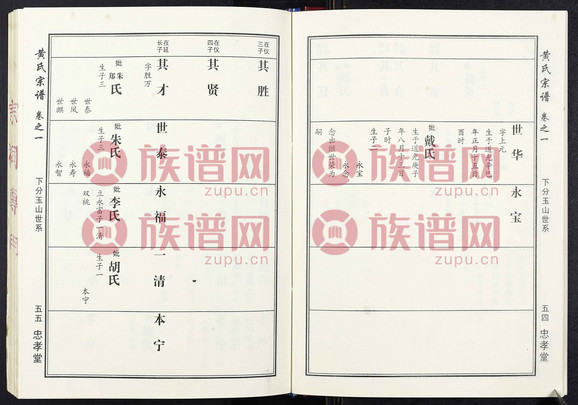 黄氏宗谱 卷之一
下分玉山世系
五四 忠孝堂
世华
字上元
生于道光辛巳
年正月十五日
酉时
妣戴氏
生于道光庚子
年八月十二日
子时
生子二
永宝
永念
念出继世荣为
嗣
永宝
在仪
三子
其胜
在仪
四子
其贤
在廷
长子
其才
字胜万
妣朱郑氏
生子三
世泰
世凤
世麒
世泰
妣朱氏
生子三
永福
永寿
永智
永福
妣李氏
立永富子一清
双祧
一清
妣胡氏
生子一
本宁
本宁
黄氏宗谱 卷之一
下分玉山世系
五五 忠孝堂
族谱网
zupu.cn
族谱网
zupu.cn
族谱网
zupu.cn
族谱网
zupu.cn